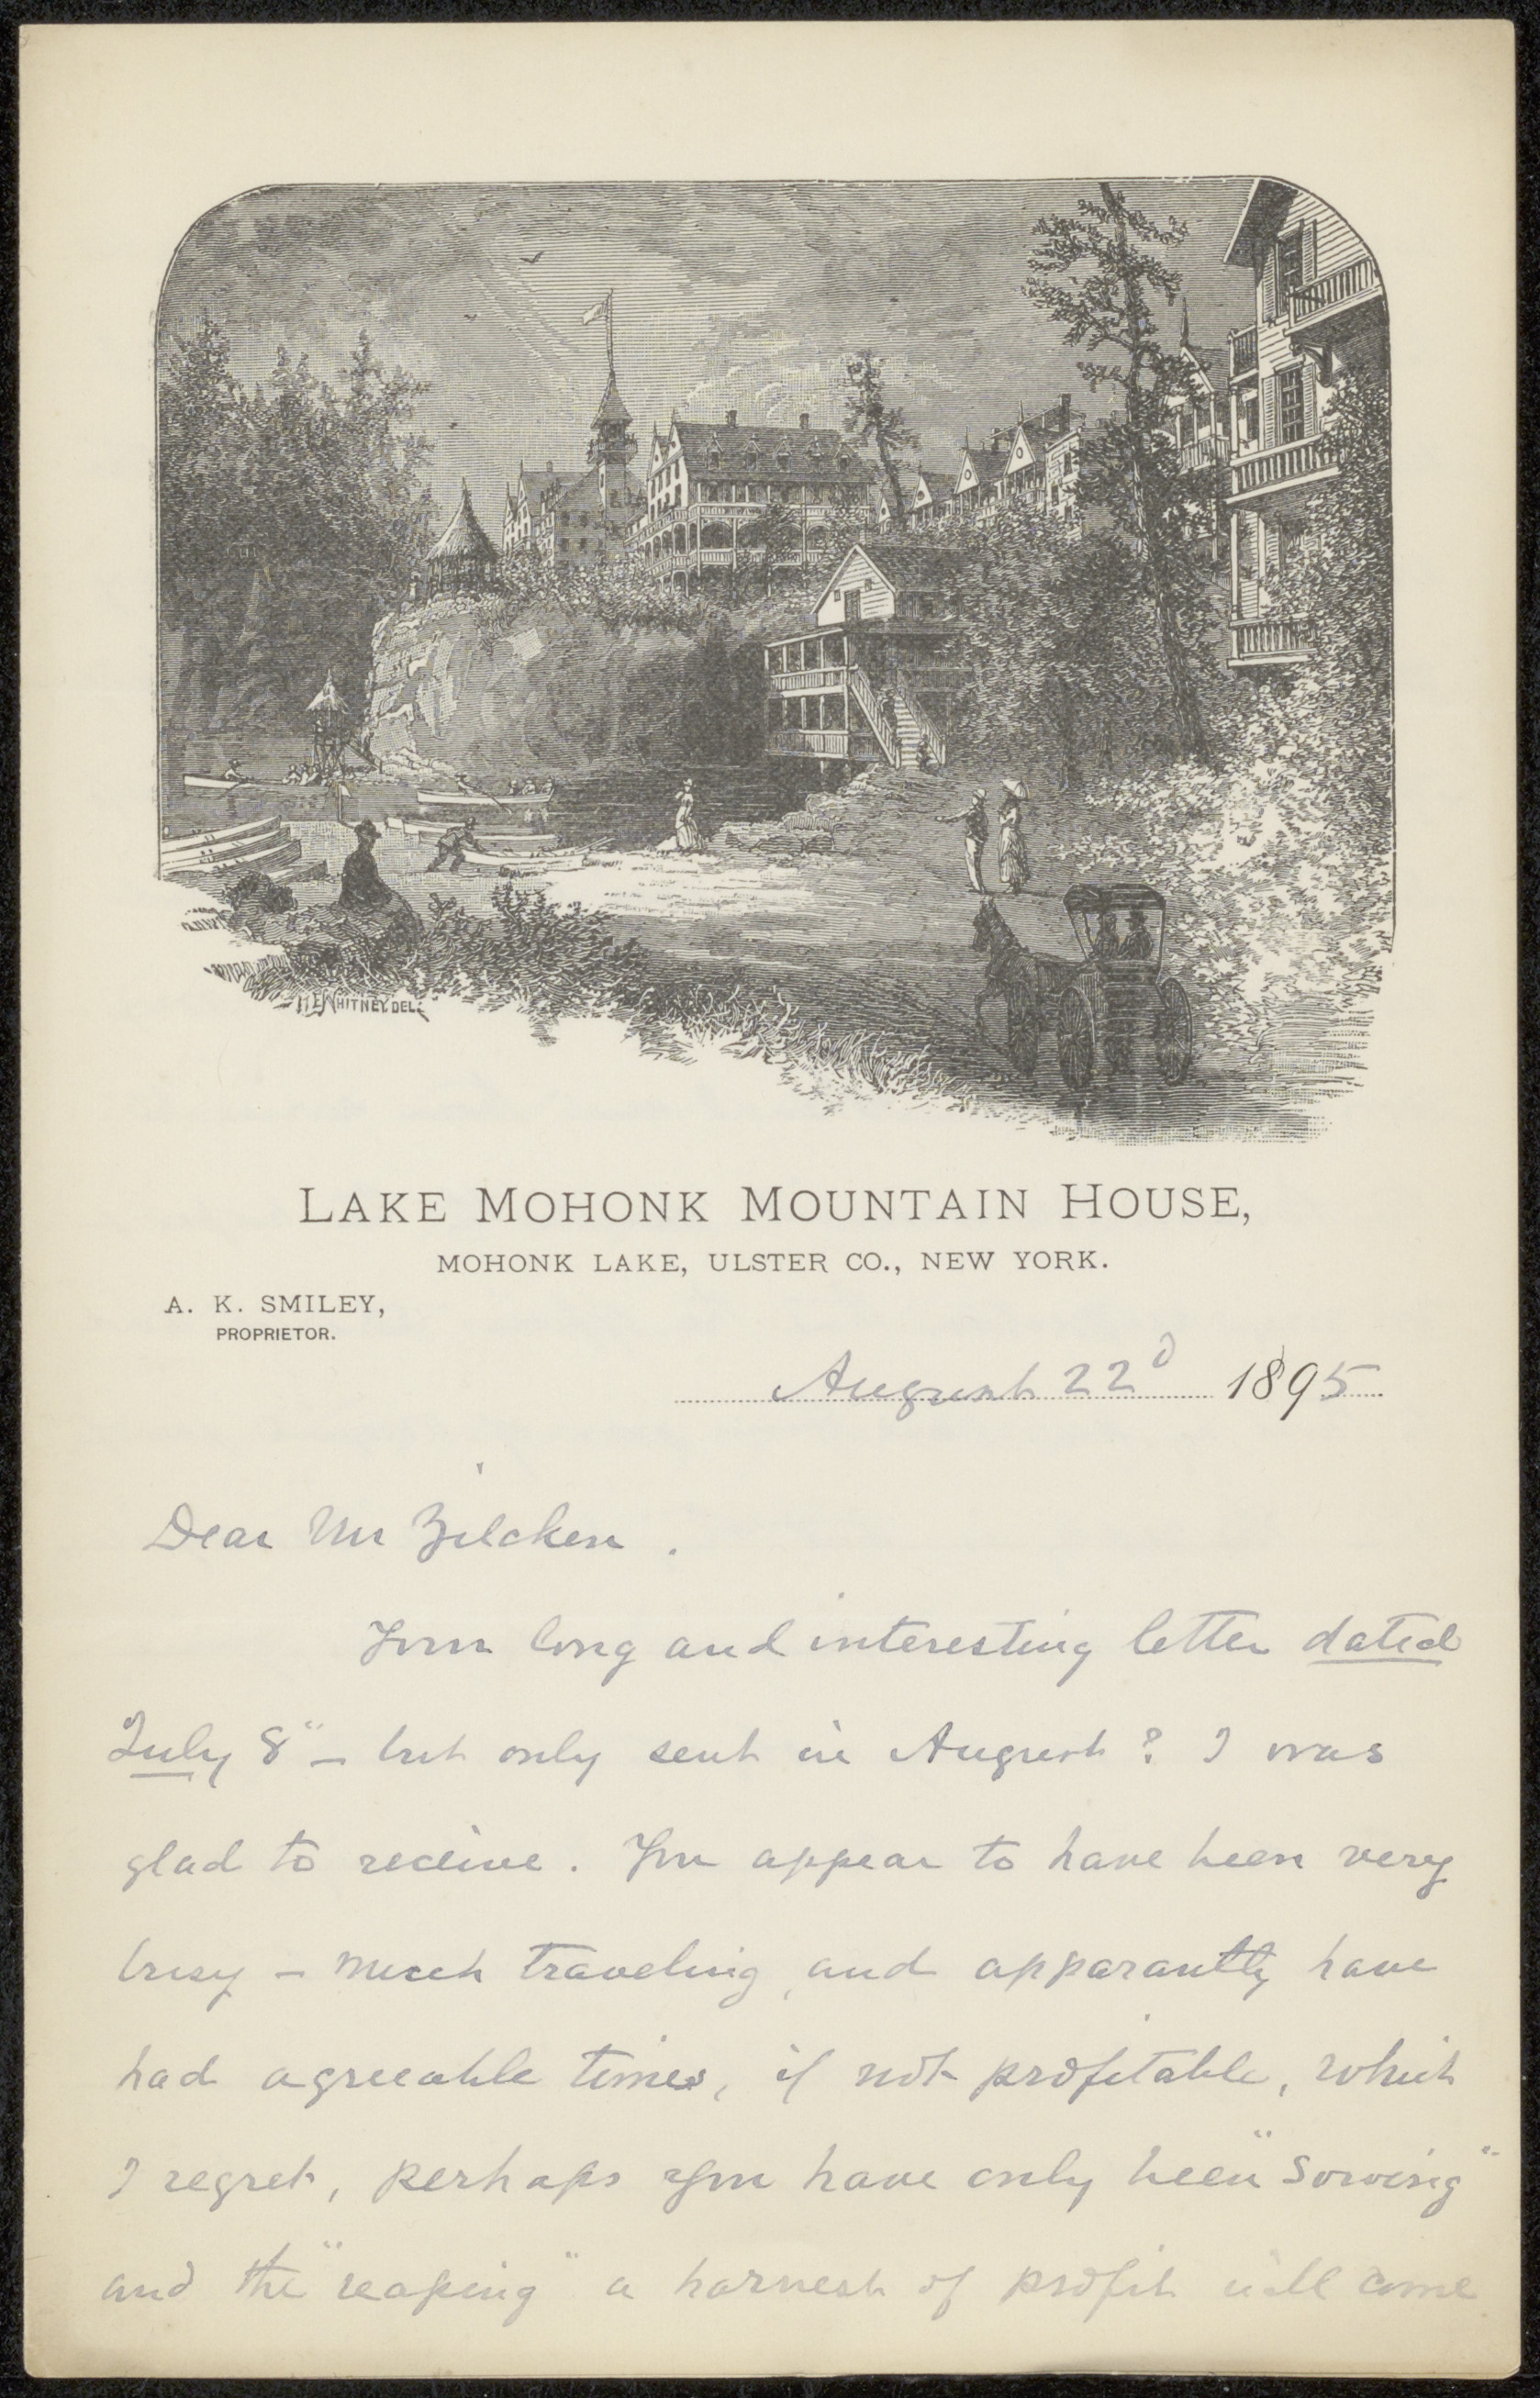 H.E. WHITNEY. DEL.
LAKE MOHONK MOUNTAIN HOUSE,
MOHONK LAKE, ULSTER CO., NEW YORK.
A. K. SMILEY,
PROPRIETOR.
August 22d 1895
Dear Mr Zilcken.
Your long and interesting letter dated
July 8" - but only sent in August? I was
glad to receive. You appear to have been very
busy - much traveling, and apparantly have
had agreeable times, if not profitable, which
I regret, perhaps you have only been "sowing"
and the "reaping" a harvest of profit will come